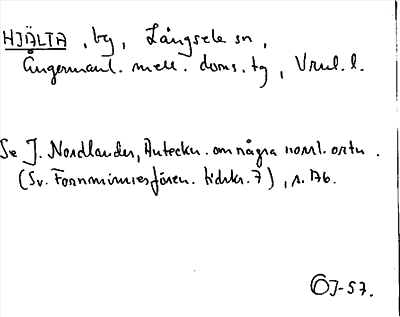 HJÄLTA, by, Långsele sn,
Ångermanl. mell. doms. tg, Vnul. l.
Se J. Nordlander, Anteckn. om några norrl. ortn.
(Sv. Fornminnesfören. tidskr. 7), s. 176.
OJ-57.